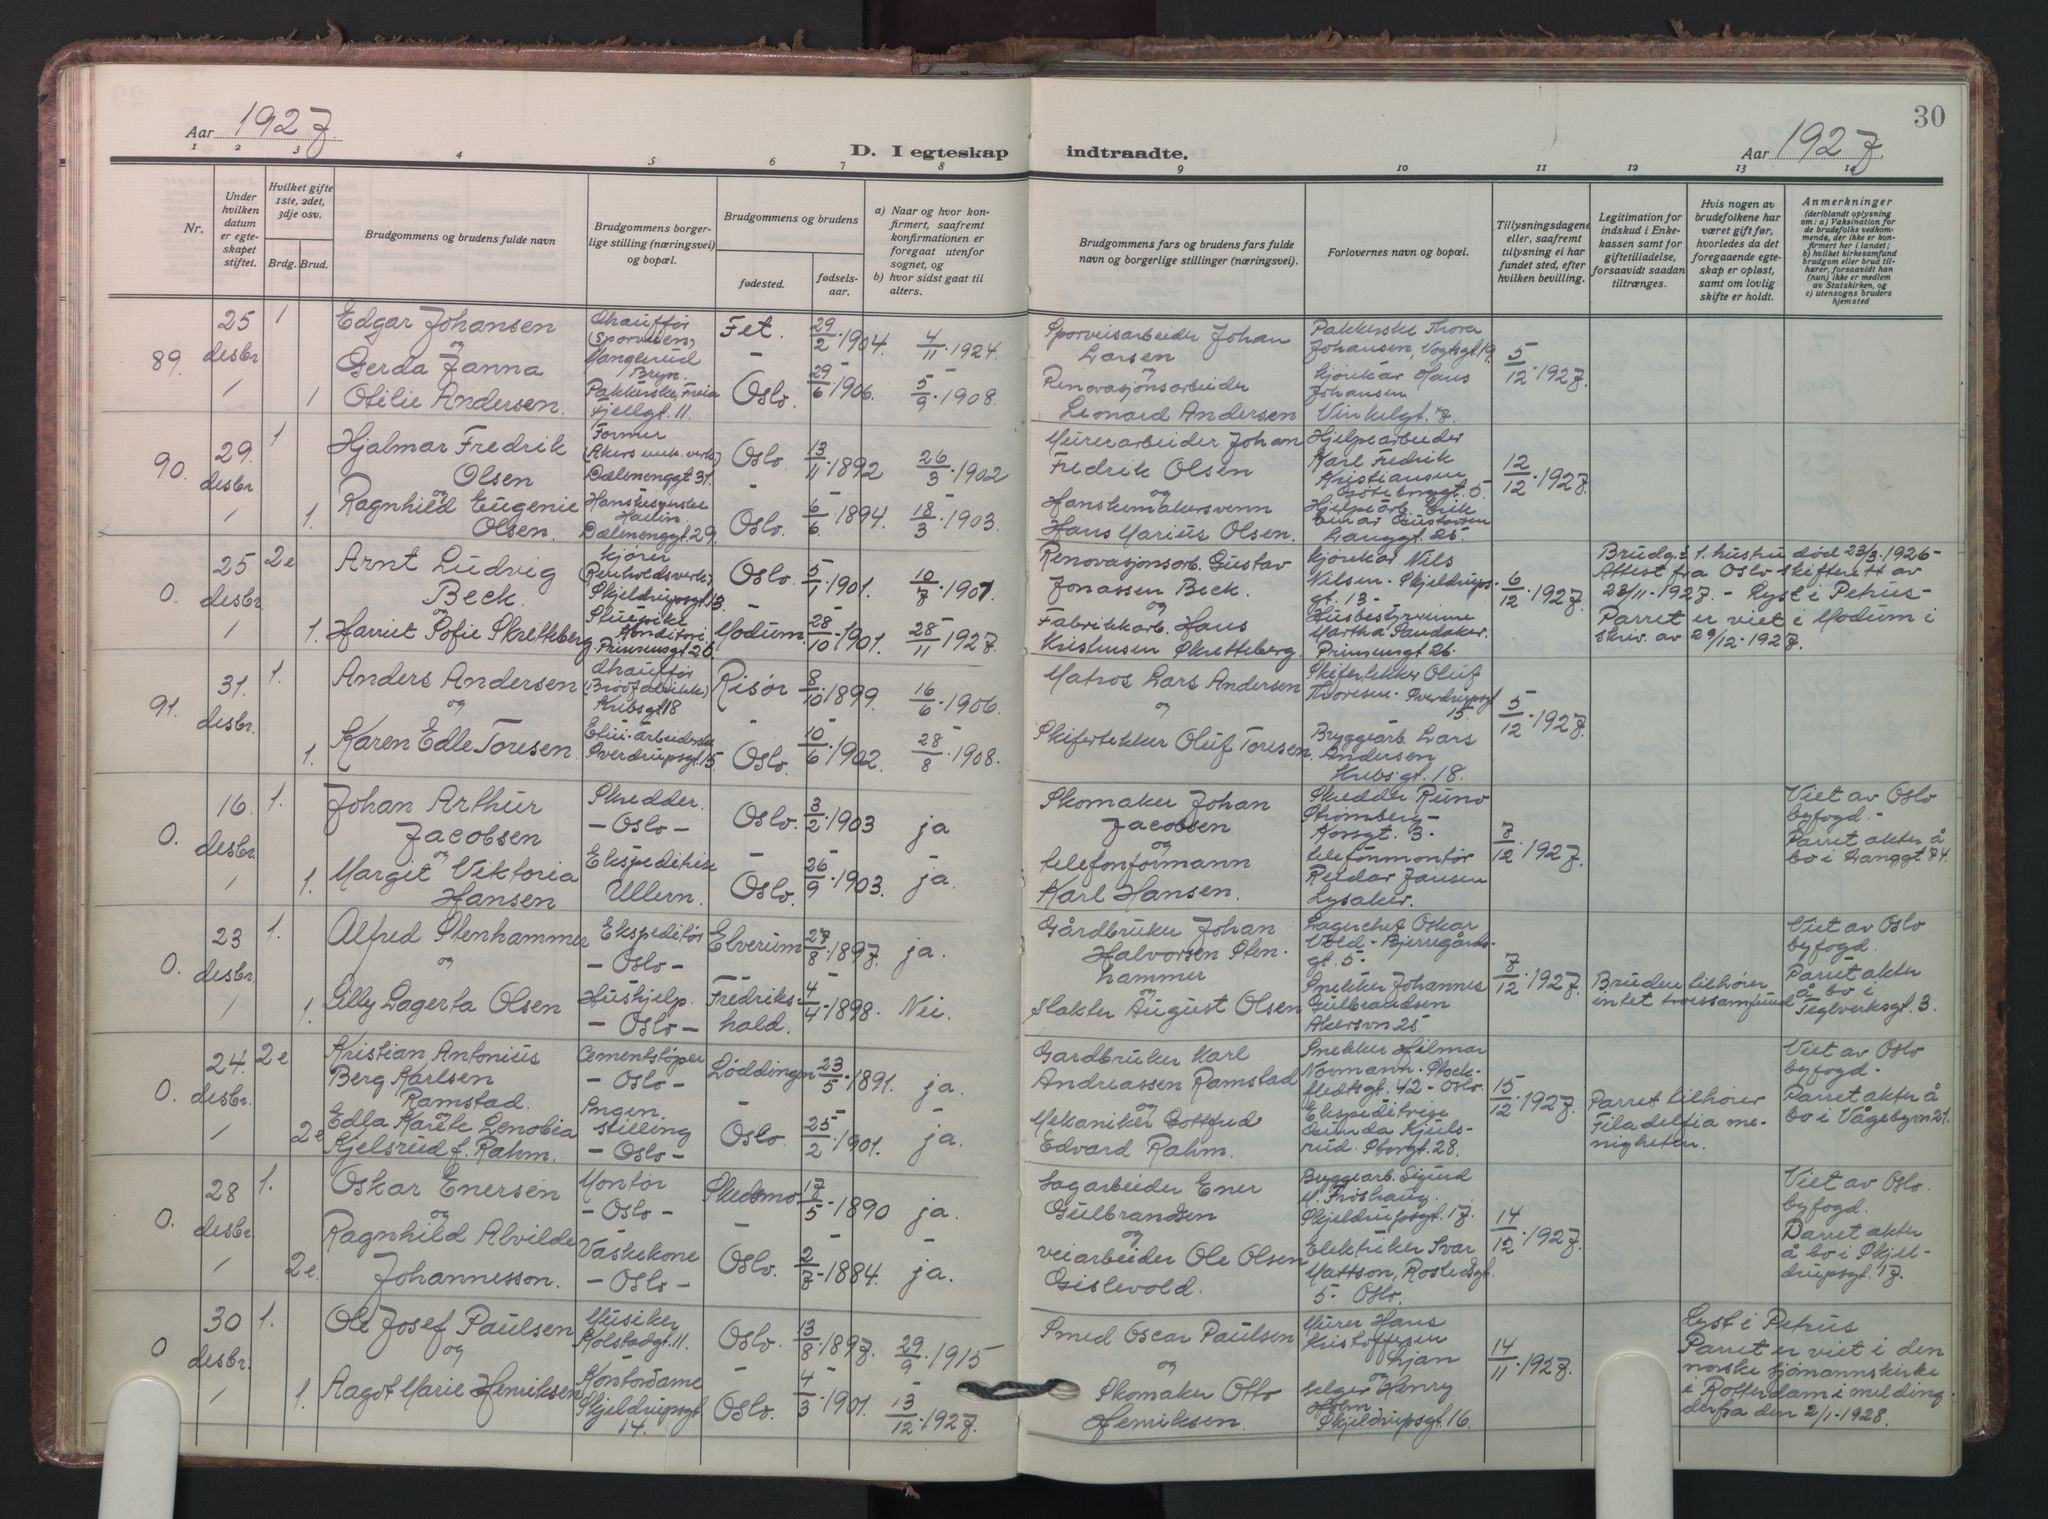 30
Aar 1927.
D. I egteskap indtraadte.
Aar 1927.
1 2 3 4 5 6 7 8 9 10 11 12 13 14
Nr.
Under hvilken datum er egteskapet stiftet.
Hvilket gifte 1ste, 2det, 3dje osv.
Brdg. Brud.
Brudgommens og brudens fulde navn
Brudgommens borgerlige stilling (næringsvei) og bopæl.
Brudgommens og brudens
fødested.
fødselsaar.
a) Naar og hvor konfirmert, saafremt konfirmationen er foregaat utenfor sognet, og
b) hvor sidst gaat til alters.
Brudgommens fars og brudens fars fulde navn og borgerlige stillinger (næringsvei).
Forlovernes navn og bopæl.
Tillysningsdagene eller, saafremt tillysning ei har fundet sted, efter hvilken bevilling.
Legitimation for indskud i Enkekassen samt for giftetilladelse, forsaavidt saadan tiltrænges.
Hvis nogen av brudefolkene har været gift før, hvorledes da det foregaaende egteskap er opløst, samt om lovlig skifte er holdt.
Anmerkninger
(deriblandt oplysning om: a) Vaksination for de brudefolks vedkommende, der ikke er konfirmert her i landet; b) hvilket kirkesamfund brudgom eller brud tilhører, forsaavidt han (nun) ikke er medlem av Statskirken, og c) utensogns bruders hjemsted
89. 25 desbr. 1
Edgar Johansen
og
Gerda Janna
Otilie Andersen.
Chauffør
(Sporveien)
Manglerud
Bryn.
Pakkerske, Freia
Fjellgt. 11.
Fet. 29/2 · 1904. 4/11 · 1924.
Oslo. 29/6 · 1906. 5/9 · 1908.
Sporveisarbeider Johan
Larsen
og
Renovasjonsarbeider
Leonard Andersen
Pakkerske Thora
Johansen, Vogtsgt. 19.
Kjørekar Hans
Johansen
Vinkelgt. 7.
5/12 · 1927.
90. 29. desbr. 1
Hjalmar Fredrik
Olsen
og
Ragnhild Eugenie
Olsen.
Former
(Akers mek. verk.)
Dælenenggt. 31.
Dælenenggt. 29.
Oslo. 13/11 · 1892 26/3 · 1902
Oslo. 6/6 · 1894. 18/3 · 1903.
Murerarbeider Johan
Fredrik Olsen
og
Hanskemakersvenn
Hans Marius Olsen.
Hjelpearbeider
Karl Fredrik
Kristiansen
Gøteborggt. 5.
Hjelpearb. Erik
Einar Gustavsen
Langgt. 25.
12/12 · 1927.
0. 25 desbr. 2e
Arnt Ludvig
Beck.
og
Harriet Sofie Skretteberg
Kjører
(Renholdsverk.)
Skjeldrupsgt. 13.
Stuepike
Konditori
Prinsensgt. 26
Oslo. 5/1 · 1901. 10/7 · 1901.
Modum. 28/10 · 1901. 28/11 · 1927.
Renovasjonsarb. Gustav
Jonassen Beck.
og
Fabrikkarb. Hans
Kristensen Skretteberg.
Kjørekar Nils
Nilsen. Skjeldrupsgt. 13 -
Husbestyrerinne
Martha Sandaker.
Prinsensgt 26.
6/12 · 1927.
Brudg.s 1. hustru død 23/3.1926 -
Attest fra Oslo skifterett av
22/11 - 1927. - Lyst i Petrus -
Parret er viet i Modum i
skriv. av 29/12 · 1927.
91. 31. desbr. 1.
Anders Andersen
og
Karen Edle Toresen.
Chauffør
Krebsgt 18
Etui-arbeiderske
Sverdrupsgt. 15.
Risør 8/10 · 1899. 16/6 · 1906.
Oslo. 10/6 · 1902. 28/8 · 1908.
Matros Lars Andersen
og
Skifertekker Oluf Toresen
Skifertekker Oluf
Thoresen. Sverdrupsgt
15.
Bryggearb. Lars
Andersen
Krebsgt. 18.
5/12 · 1927.
0. 16. desbr. 1.
Johan Arthur
Jacobsen
og
Margit Viktoria
Hansen
Skredder.
- Oslo -
Ekspeditrise
Ullern.
Oslo. 3/2 · 1903 ja
Oslo. 26/9 · 1903. ja.
Skomaker Johan
Jacobsen
og
telefonformann
Karl Hansen.
Skredder Runo
Strømberg -
Korsgt. 3.
telefonmontør
Reidar Jansen
Lysaker.
7/12 · 1927.
Viet av Oslo
byfogd. -
Parret akter å
bo i Langgt 74.
0. 23 desbr. 1.
Alfred Stenhammer
og
Lilly Lagerta Olsen
Ekspeditør
- Oslo -
Hushjelp.
- Oslo -
Elverum 27/8 · 1897. ja.
Fredrikshald. 4/4 · 1898. Nei.
Gårdbruker Johan
Halvorsen Stenhammer
og
Slakter August Olsen
Lagerchef Oskar
Vold - Bjerregårdsgt. 5 -
Snekker Johannes
Gulbrandsen
Akersvn 25.
7/12 · 1927.
Bruden tilhører
intet trossamfund
Viet av Oslo
byfogd.
Parret akter
å bo i
Teglverksgt. 3.
0. 24. desbr. 2e
Kristian Antonius
Berg Karlsen
Ramstad.
Edla Karete Lenobia
Kjelsrud f. Rahm.
Cementstøper
- Oslo -
Ingen.
stilling
- Oslo -
Løddingen 23/5 · 1891. ja.
Oslo. 25/2 · 1901. ja.
Gardbruker Karl
Andreassen Ramstad
og
Mekaniker Gottfred
Edvard Rahm.
Snekker Hilmar
Normann. Stockfledtsgt. 42 - Oslo.
Ekspeditrise
Gunda Kjelsrud. Sborggt. 28.
15/12 · 1927.
Parret tilhører
Filadelfia menigheten.
Viet av Oslo
byfogd -
Parret akter å
bo i Vågebyvn 21.
0. 28 desbr. 1.
Oskar Enersen
og
Ragnhild Alvilde
Johannesson. 2e.
Montør
- Oslo -
Vaskekone
- Oslo -
Skedsmo 17/5 · 1890 ja.
Oslo. 2/7 · 1884. ja.
Sagarbeider Ener
Gulbrandsen
og
veiarbeider Ole Olsen
Gislevold.
Bryggearb. Sigurd
M. Frøshaug.
Skjeldrupsgt. 17.
Elektriker Ivar
Mattson, Rostedsgt.
5. Oslo.
14/12 · 1927.
Viet av Oslo.
byfogd.
Parret akter
å bo i Skjeldrupsgt. 17.
0 30 desbr. 1.
Ole Josef Paulsen
og
Aagot Marie Henriksen
Musiker
Kolstadgt. 11.
Kontordame
Skjeldrupsgt
14.
Oslo. 13/8 · 1897. 29/9 · 1915
Oslo. 4/3 · 1901. 13/12 · 1927.
Smed Oscar Paulsen
og
Skomaker Otto
Henriksen.
Murer Hans
Kristoffersen
Ljan
og
selger Henry
Holm
Skjeldrupsgt. 16.
14/11 · 1927.
Lyst i Petrus
Parret er viet i den
norske sjømannskirke
i Rotterdam i melding
derfra den 2/1 - 1928.